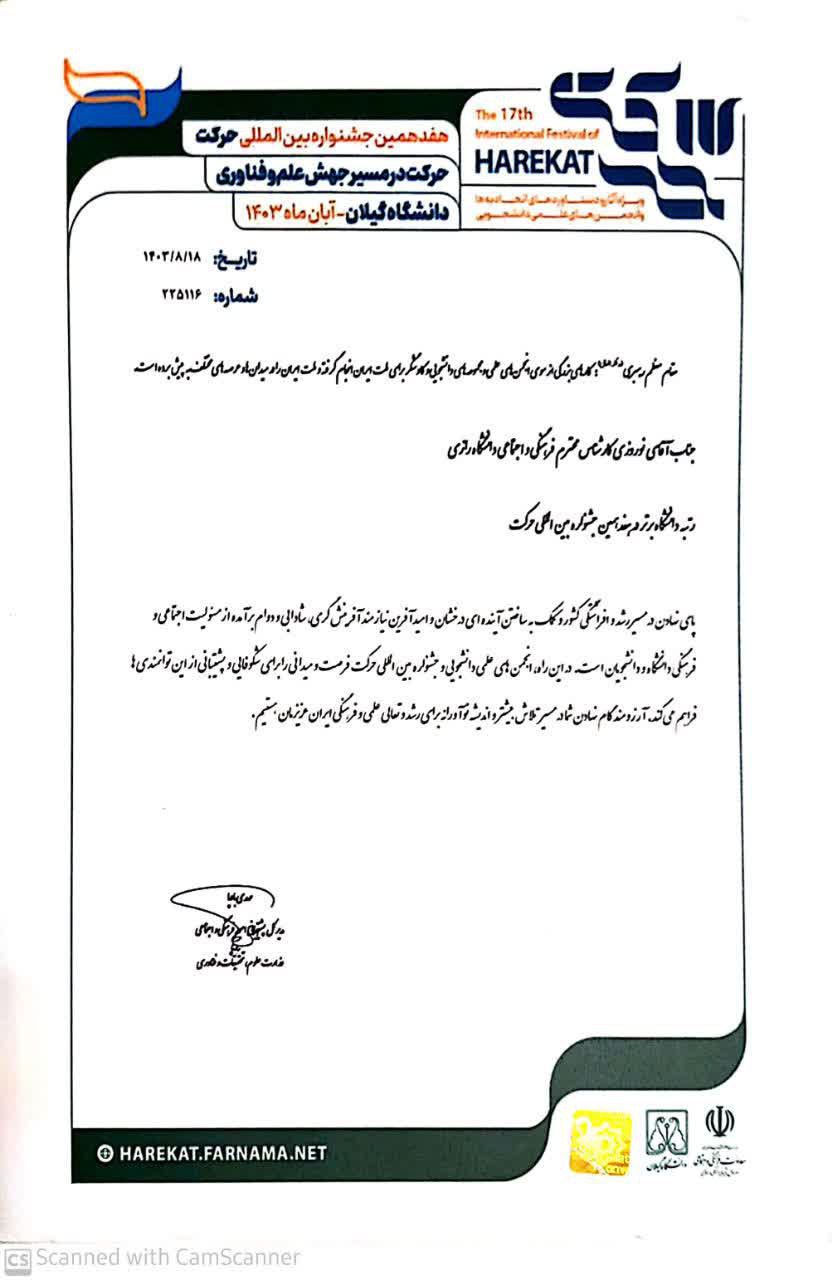 هفدهمین جشنواره بین المللی حرکت
حرکت در مسیر جهش علم و فناوری
دانشگاه گیلان - آبان ماه ۱۴۰۳
The 17th
International Festival of
HAREKAT
حرکت
ویژه آثار و دستاوردهای اتحادیه ها
و انجمن های علمی دانشجویی
تاریخ: ۱۴۰۳/۸/۱۸
شماره: ۲۲۵۱۱۶
مقام معظم رهبری: کارهای بزرگی از سوی انجمن های علمی و مجموعه های دانشجویی و کاوشگر برای ملت ایران انجام گرفته و ملت ایران را در میدان ها و عرصه های مختلف به پیش برده است.
جناب آقای نوروزی کارشناس محترم فرهنگی و اجتماعی دانشگاه رازی
رتبه دانشگاه برتر در هفدهمین جشنواره بین المللی حرکت
پای نهادن در مسیر رشد و افراشتگی کشور و کمک به ساختن آینده ای درخشان و امیدآفرین نیازمند آفرینش گری، شادابی و دوام برآمده از مسئولیت اجتماعی و
فرهنگی دانشگاه و دانشجویان است. در این راه، انجمن های علمی دانشجویی و جشنواره بین المللی حرکت فرصت و میدانی را برای شکوفایی و پشتیبانی از این توانمندی ها
فراهم می کند. آرزومند گام نهادن شما در مسیر تلاش بیشتر و اندیشه نوآورانه برای رشد و تعالی علمی و فرهنگی ایران عزیزمان هستیم.
مدیر کل پشتیبانی امور فرهنگی و اجتماعی
وزارت علوم، تحقیقات و فناوری
HAREKAT.FARNAMA.NET
دانشگاه گیلان
CS Scanned with CamScanner